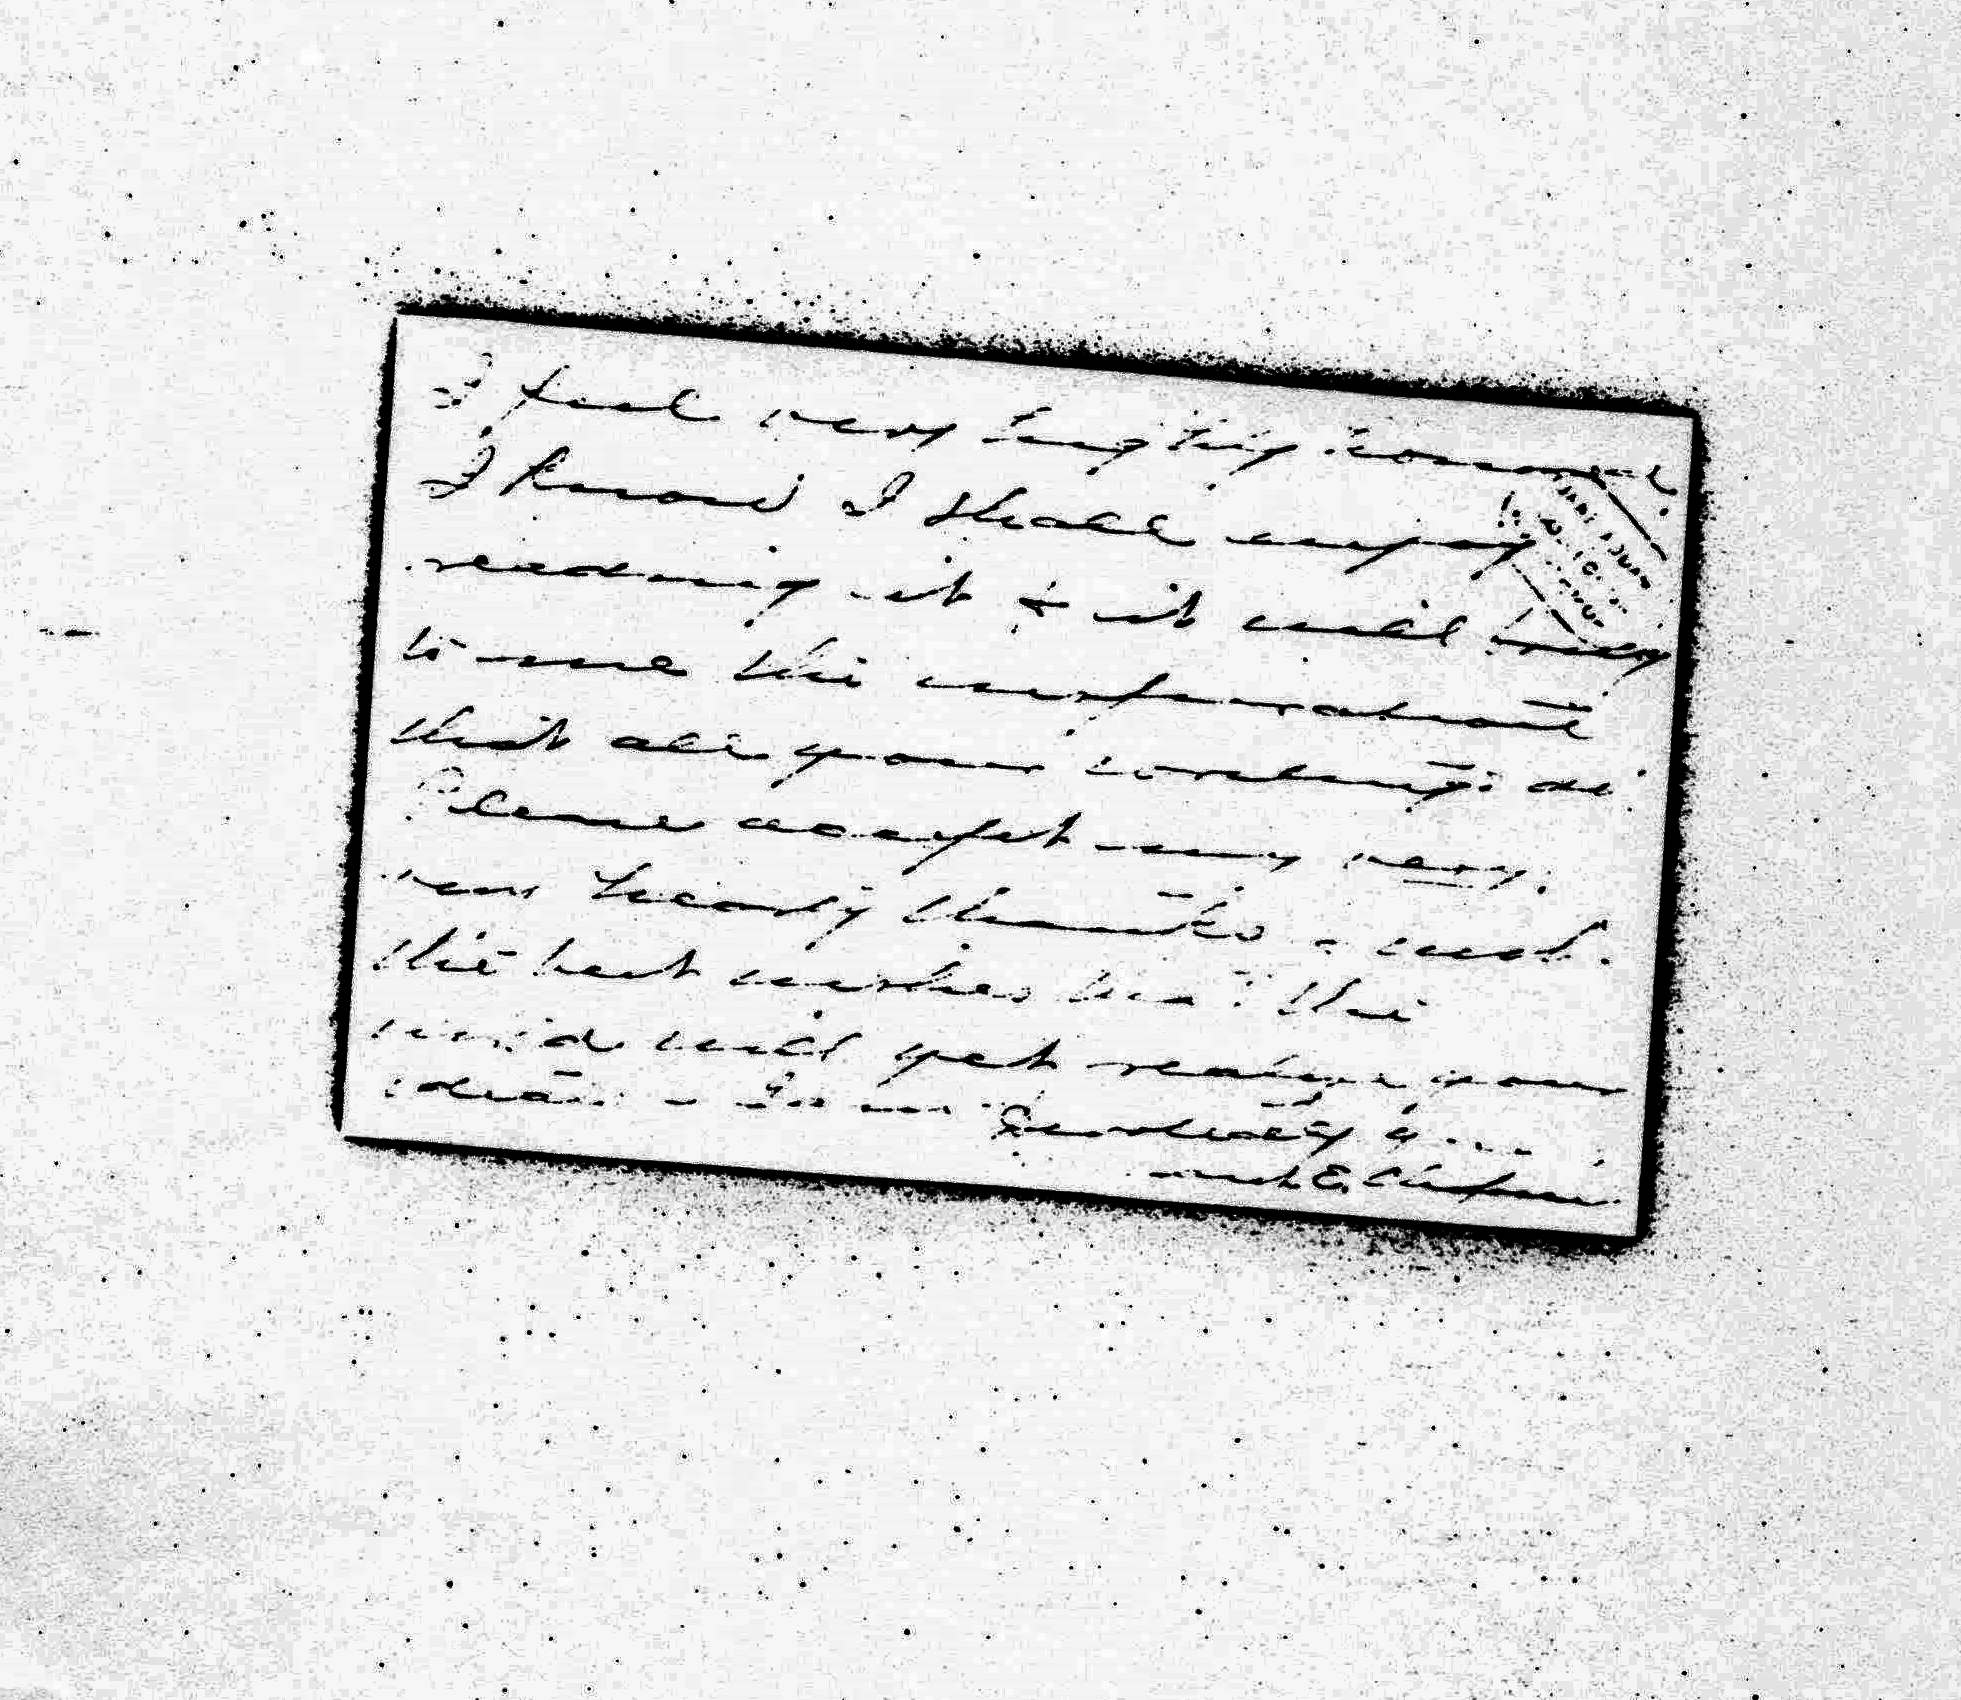 I feel very highly honored.
I know I shall enjoy
reading it & it will bring
to me the inspiration
that all your writings do.
Please accept my very
very hearty thanks & with
the best wishes that the
world will yet realize your
ideas - I am
Cordially yours